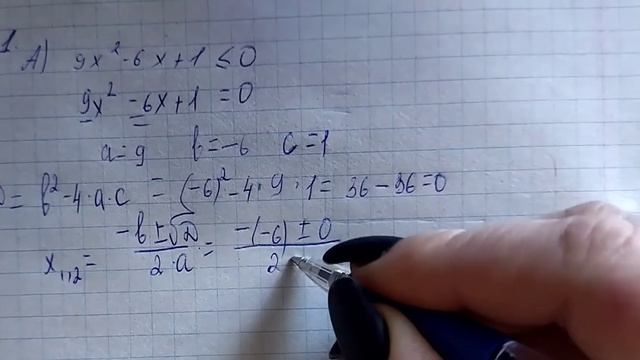 1.
A) 9x² - 6x + 1 ≤ 0
9x² - 6x + 1 = 0
a = 9 b = -6 c = 1
D = b² - 4·a·c = (-6)² - 4·9·1 = 36 - 36 = 0
x₁,₂ = (-b ± √D)/(2·a) = (-(-6) ± 0)/(2